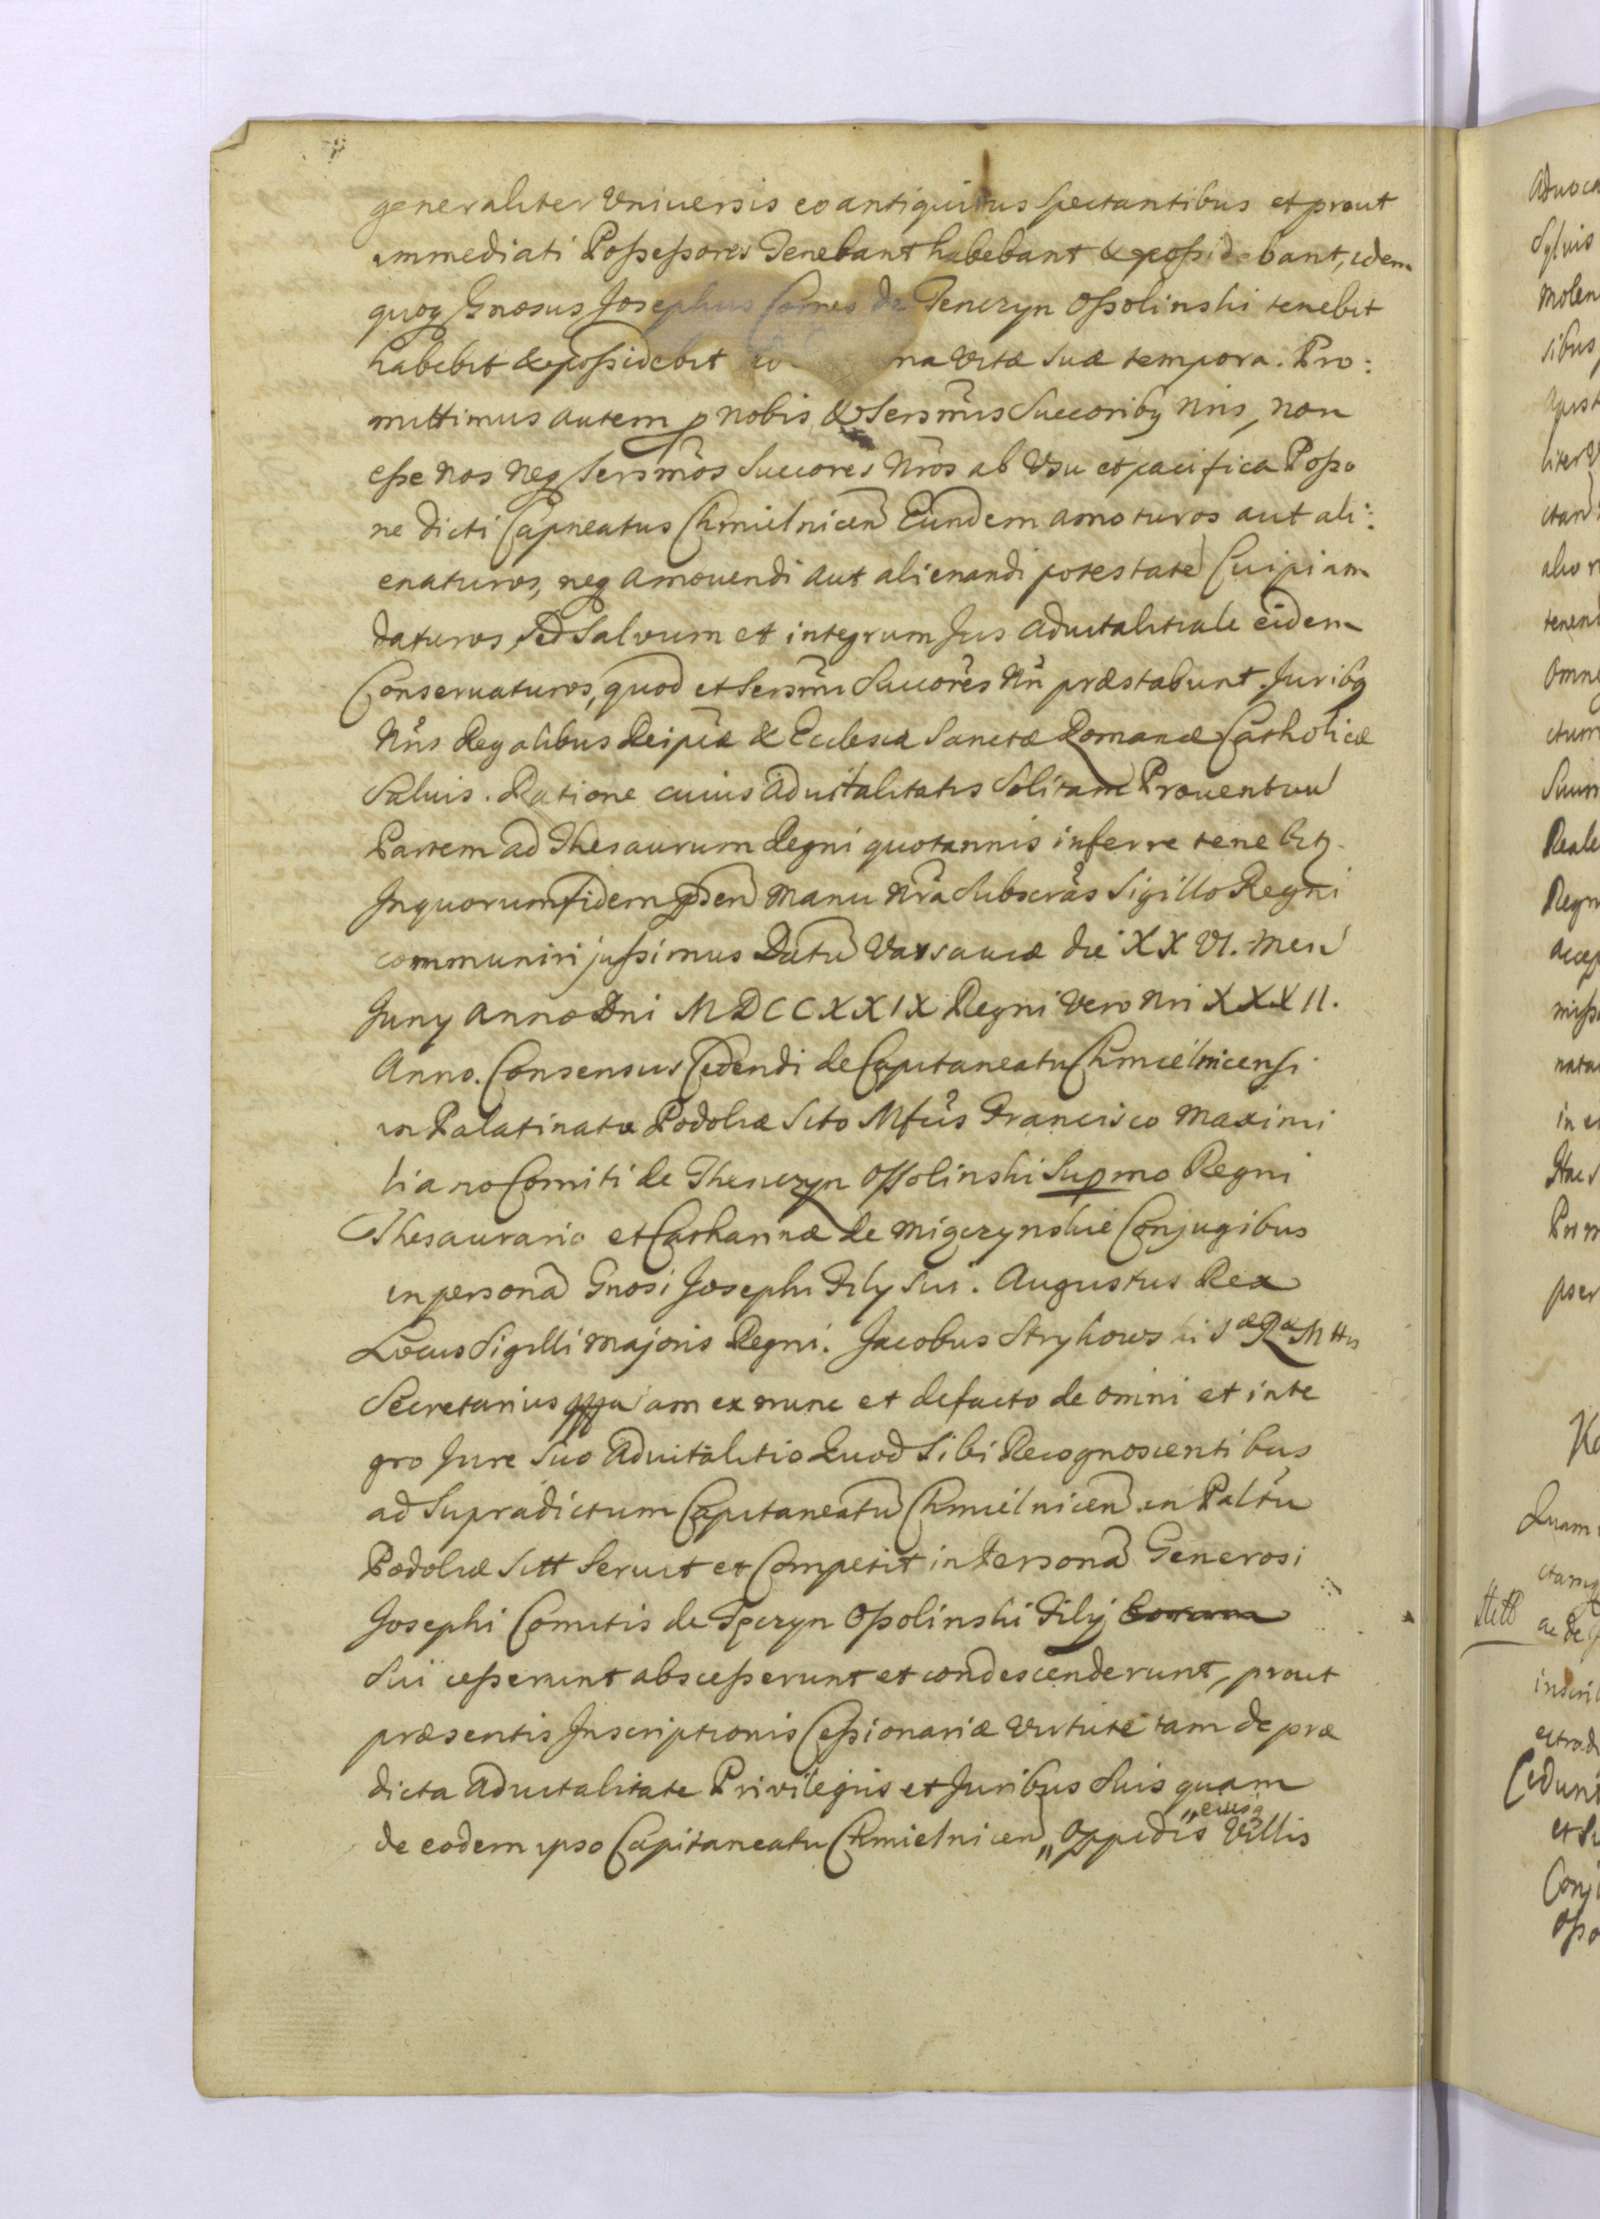 generaliter Universis eo antiquitus spectantibus et prout
immediati Possessores Tenebant habebant & possidebant, idem
quoq Gnosus Josephus Comes de Tenczyn Ossolinski tenebit
habebit & possidebit na Vitæ Suæ tempora. Pro:
mittimus autem p nobis & Sersmis Succoribq Nris, non
esse nos neq Sersmos Succores Nros ab Usu et pacifica Posso
ne dicti Capneatus Chmielnicen Eundem amoturos aut ali:
enaturos, neq amovendi aut alienandi potestate Cuipiam
daturos, Sed Salvum et integrum Jus advitalitiale eidem
Conservaturos, quod et Sersmi Succores Nri præstabunt. Juribq
Nris Regalibus Reipcæ & Ecclesiæ Sanctæ Romanæ Catholicæ
Salvis. Ratione cuius advitalitatis Solitam Proventuu
Partem ad Thesaurum Regni quotannis inferre tenebitq.
In quorum fidem psen manu Nra Subscras Sigillo Regni
communiri jussimus Datu Varsaviæ die XXVI. Men
Juny Anno Dni MDCCXXIX Regni Vero Nri XXXII.
Anno. Consensus Cedendi de Capitaneatu Chmielnicensi
in Palatinatu Podoliæ Sito Mfcis Francisco Maximi
liano Comiti de Thenczyn Ossolinski Supmo Regni
Thesaurario et Catharinæ de Miączynskie Conjugibus
in persona Gnosi Josephi Fily Sui. Augustus Rex
Locus Sigilli majoris Regni. Jacobus Strykowski Sæ Ræ Mttis
Secretarius am ex nunc et de facto de omni et inte
gro Jure Suo Advitalitio Quod Sibi Recognoscentibus
ad Supradictum Capitaneatu Chmielnicen in Paltu
Podoliæ Sitt Servit et Competit in Persona Generosi
Josephi Comitis de Tęczyn Ossolinski Filij
Sui cesserunt abscesserunt et condescenderunt, prout
præsentis Inscriptionis Cessionariæ Virtute tam de præ
dicta Advitalitate Privilegiis et Juribus Suis quam
de eodem ipso Capitaneatu Chmielnicen „ Oppidis „ eiusq Villis